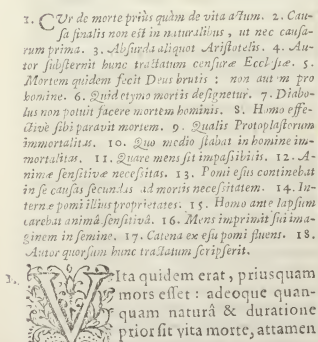 1. CVr de morte priùs quàm de vita actum. 2. Cau-
sa finalis non est in naturalibus, ut nec causa-
rum prima. 3. Absurda aliquot Aristotelis. 4. Au-
tor substernit hunc tractatum censuræ Ecclesiæ. 5.
Mortem quidem fecit Deus brutis : non autem pro
homine. 6. Quid etymo mortis designetur. 7. Diabo-
lus non potuit facere mortem hominis. 8. Homo effe-
ctivè sibi paravit mortem. 9. Qualis Protoplastorum
immortalitas. 10. Quo medio stabat in homine im-
mortalitas. 11. Quare mens sit impassibilis. 12. A-
nimæ sensitivæ necessitas. 13. Pomi esus continebat
in se causas secundas ad mortis necessitatem. 14. In-
ternæ pomi illius proprietates. 15. Homo ante lapsum
carebat animâ sensitivâ. 16. Mens imprimit sui ima-
ginem in semine. 17. Catena ex esu pomi fluens. 18.
Autor quorsum hunc tractatum scripserit.
1. VIta quidem erat, priusquam
mors esset : adeoque quan-
quam naturâ & duratione
prior sit vita morte, attamen